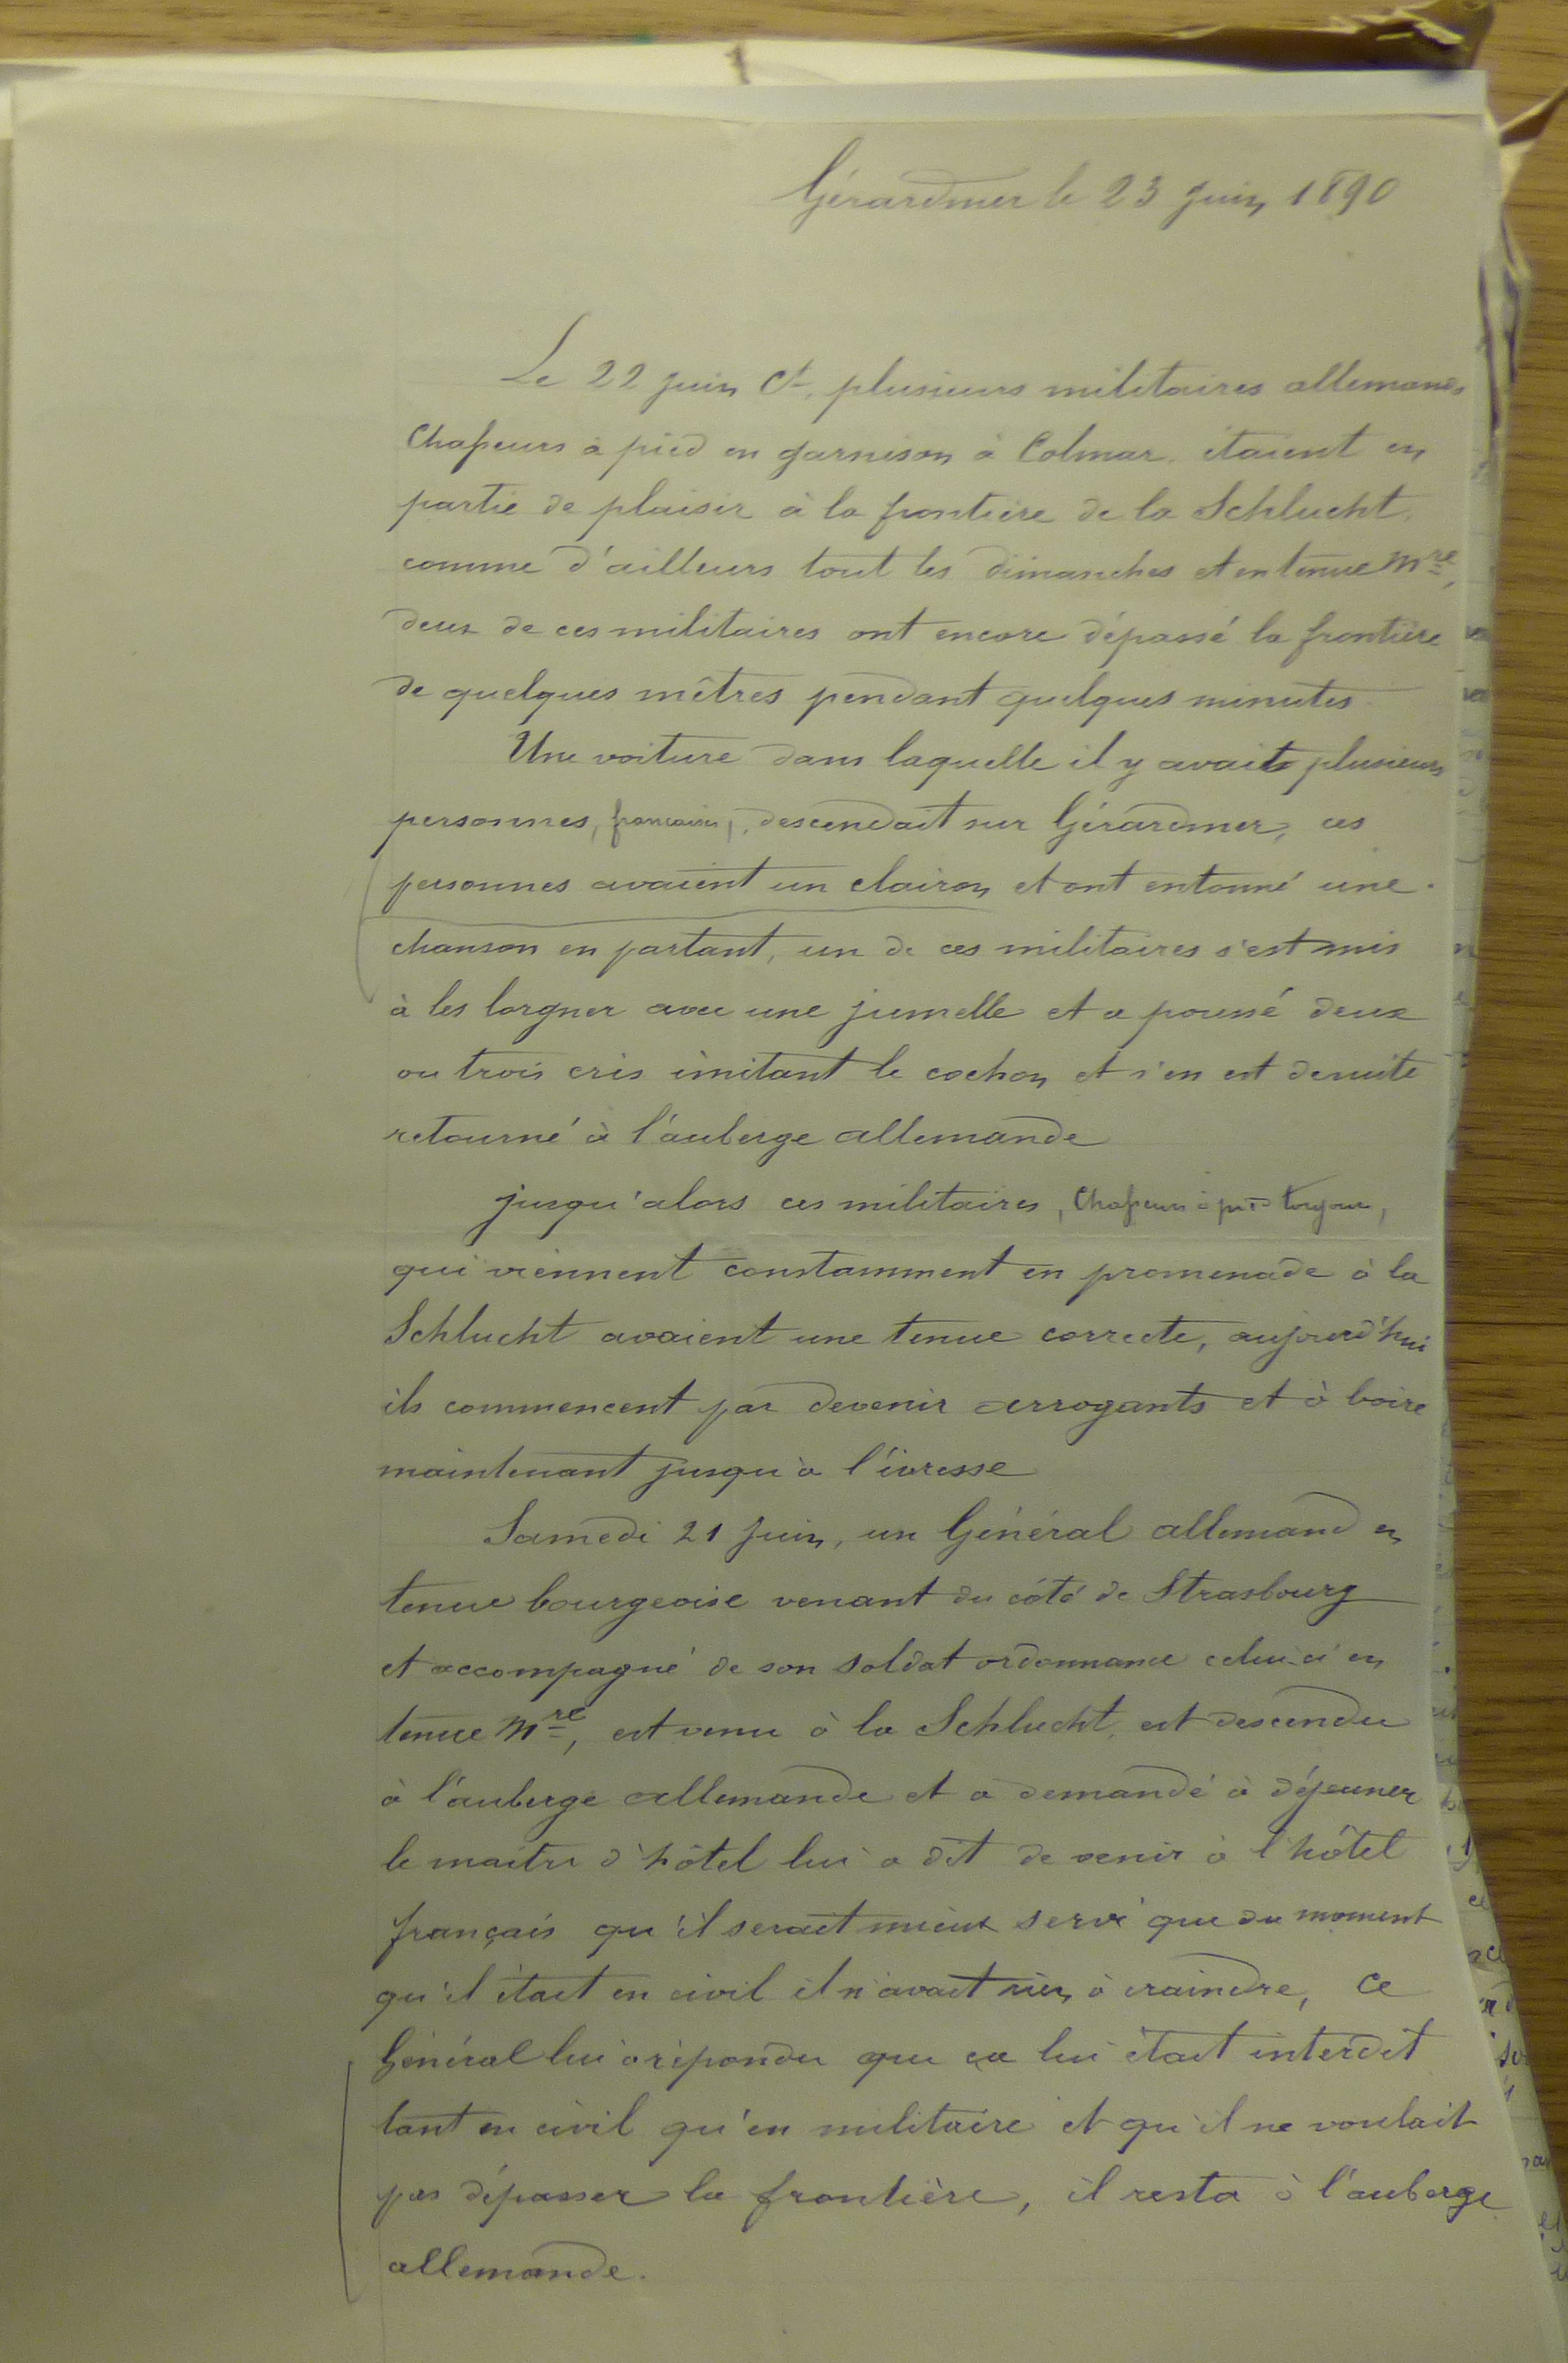 Gérardmer le 23 juin 1890
Le 22 juin Ct, plusieurs militaires allemands
Chasseurs à pied en garnison à Colmar étaient en
partie de plaisir à la frontière de la Schlucht,
comme d'ailleurs tout les dimanches et en tenue Mre,
deux de ces militaires ont encore dépassé la frontière
de quelques mètres pendant quelques minutes
Une voiture dans laquelle il y avait plusieurs
personnes, françaises, descendait sur Gérardmer, ces
personnes avaient un clairon et ont entonné une
chanson en partant, un de ces militaires s'est mis
à les lorgner avec une jumelle et a poussé deux
ou trois cris imitant le cochon et s'en est desuite
retourné à l'auberge allemande
jusqu'alors ces militaires, Chasseurs à pied toujours,
qui viennent constamment en promenade à la
Schlucht avaient une tenue correcte, aujourd'hui
ils commencent par devenir arrogants et à boire
maintenant jusqu'à l'ivresse
Samedi 21 juin, un Général allemand en
tenue bourgeoise venant du côté de Strasbourg
et accompagné de son soldat ordonnance celui-ci en
tenue Mre, est venu à la Schlucht, est descendu
à l'auberge allemande et a demandé à déjeuner
le maitre d'hôtel lui a dit de venir à l'hôtel
français qu'il serait mieux servi que du moment
qu'il était en civil il n'avait rien à craindre, Ce
Général lui a répondu que ça lui était interdit
tant en civil qu'en militaire et qu'il ne voulait
pas dépasser la frontière, il resta à l'auberge
allemande.